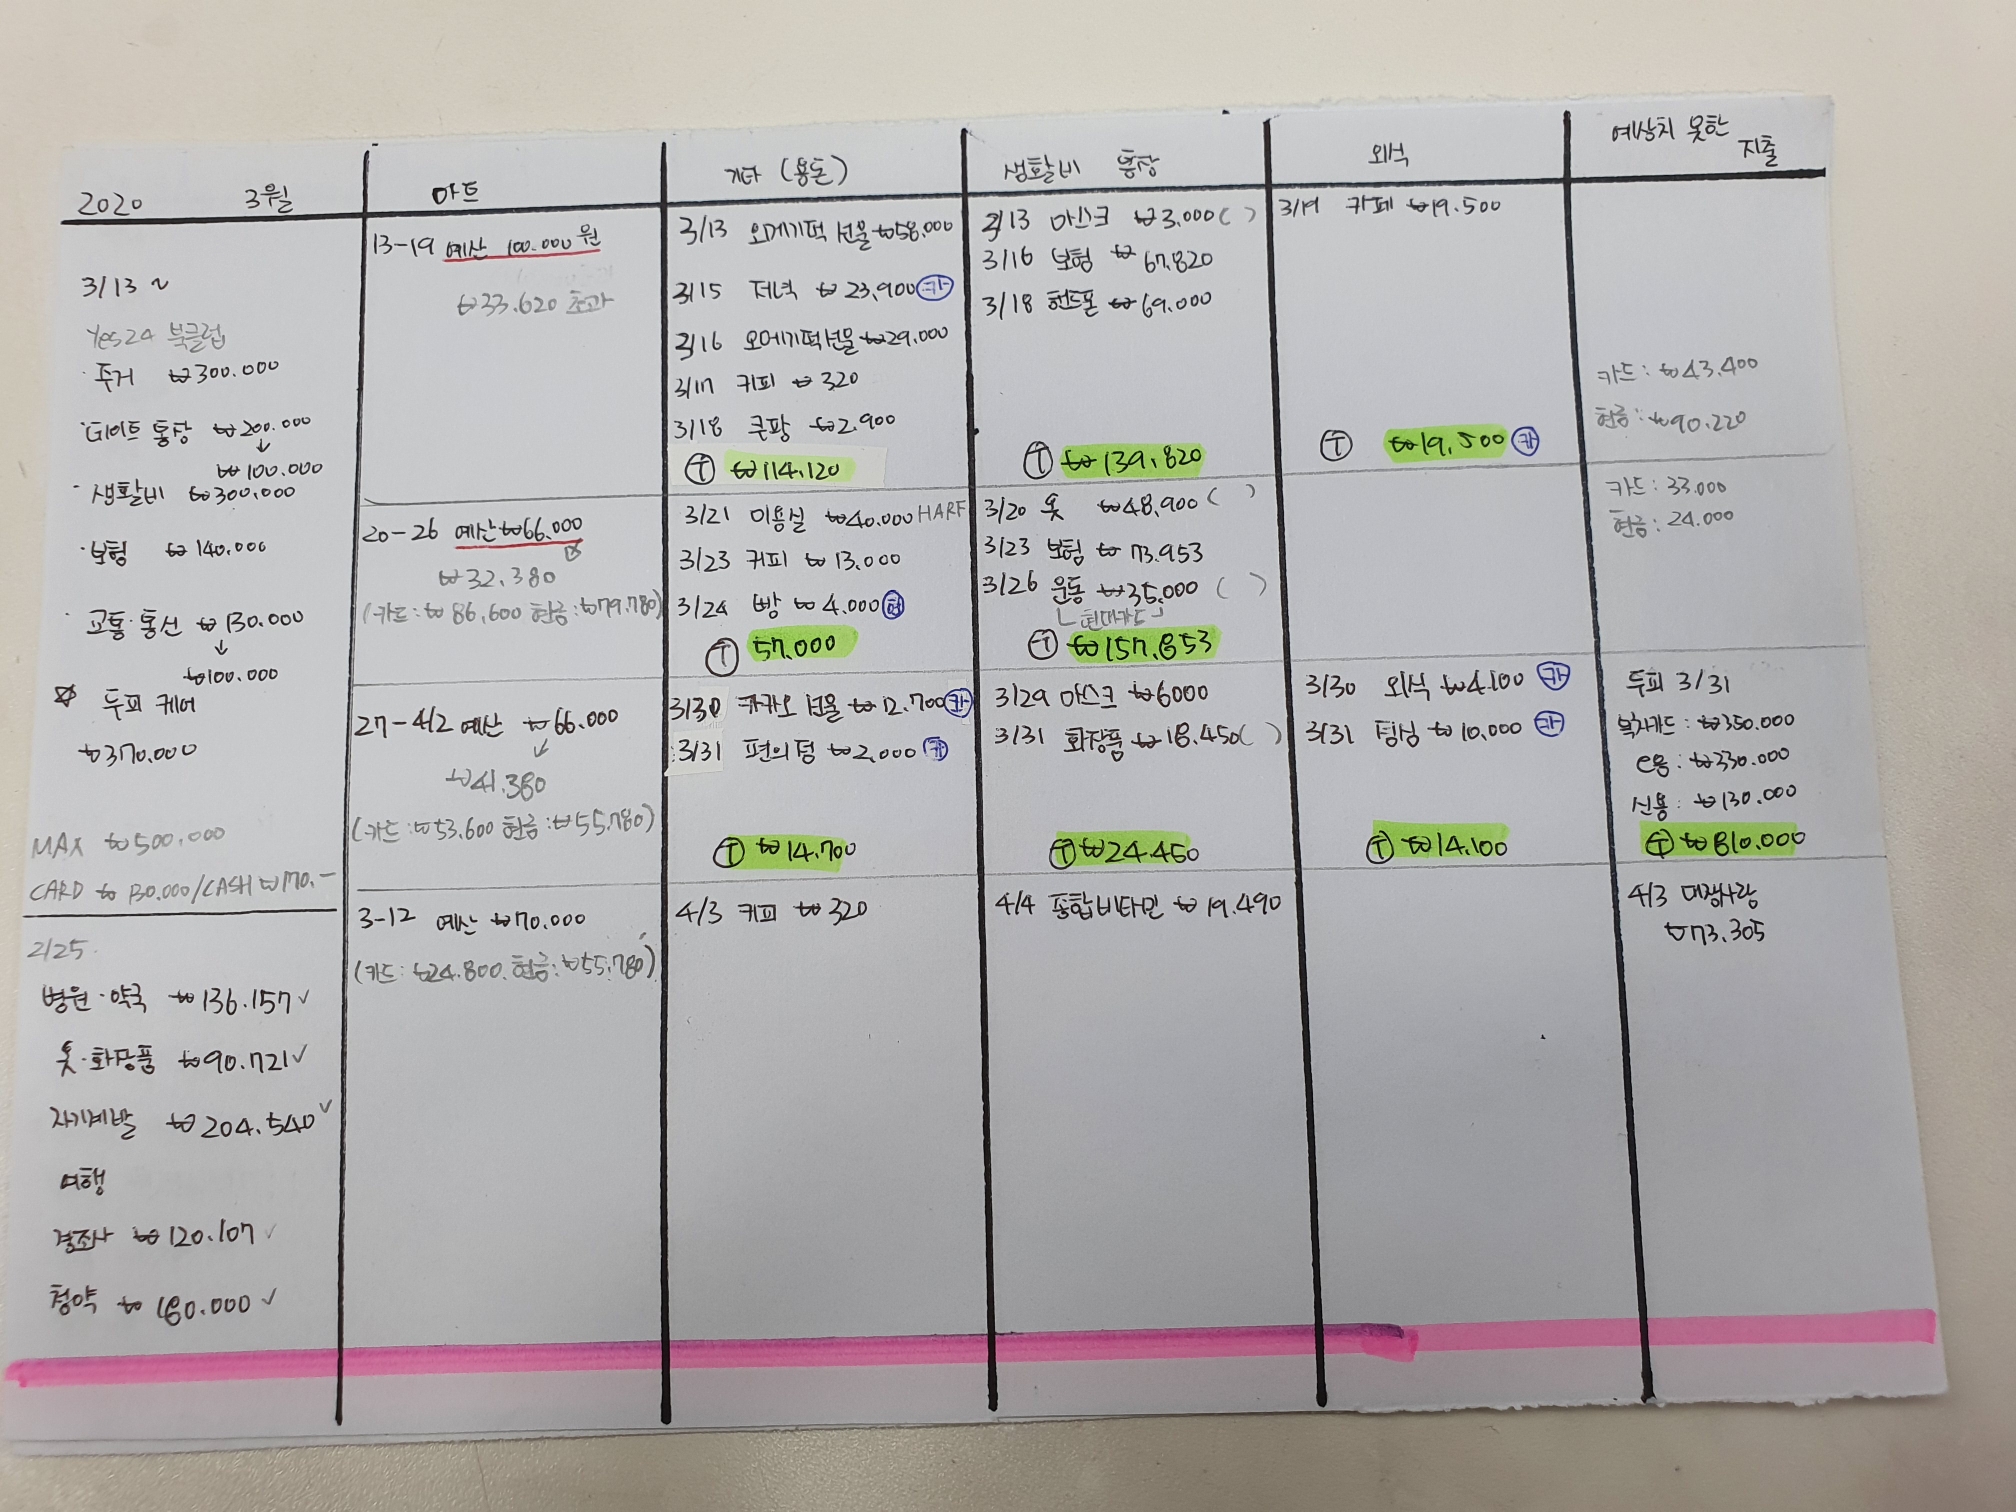 2020 3월
3/13 ~
Yes24 북클럽
· 주거 ₩300.000
· 데이트 통장 ₩200.000
↓
₩100.000
· 생활비 ₩300.000
· 보험 ₩140.000
· 교통·통신 ₩130.000
↓
₩100.000
☆ 두피 케어
₩370.000
MAX ₩500.000
CARD ₩130.000/CASH ₩170.-
2/25.
병원·약국 ₩136.157 ✓
옷·화장품 ₩90.721 ✓
자기계발 ₩204.540 ✓
여행
경조사 ₩120.107 ✓
청약 ₩160.000 ✓
마트
13-19 예산 100.000원
₩33.620 초과
20-26 예산 ₩66.000
₩32.380
(카드: ₩86,600 현금: ₩79.780)
27-4/2 예산 ₩66.000
↓
₩41.380
(카드: ₩53.600 현금: ₩55.780)
3-12 예산 ₩70.000
(카드: ₩24.800. 현금: ₩55.780)
기타 (용돈)
3/13 오메기떡 선물 ₩58.000
3/15 저녁 ₩23,900 카
3/16 오메기떡선물 ₩29.000
3/17 커피 ₩320
3/18 쿠팡 ₩2.900
T ₩114.120
3/21 미용실 ₩40.000 HARF
3/23 커피 ₩13.000
3/24 빵 ₩4.000 현
T 57.000
3/30 카카오 선물 ₩12.700 카
3/31 편의점 ₩2,000 카
T ₩14.700
4/3 커피 ₩320
생활비 통장
3/13 마스크 ₩3.000( )
3/16 보험 ₩67.820
3/18 핸드폰 ₩69.000
T ₩139.820
3/20 옷 ₩48,900 ( )
3/23 보험 ₩73.953
3/26 운동 ₩35.000 ( )
ㄴ현대카드
T ₩157.853
3/29 마스크 ₩6000
3/31 화장품 ₩18.450( )
T ₩24.450
4/4 종합비타민 ₩19.490
외식
3/19 카페 ₩19.500
T ₩19,500 카
3/30 외식 ₩4.100 카
3/31 ₩10.000 카
T ₩14.100
예상치 못한
지출
카드: ₩43.400
현금: ₩90.220
카드: 33.000
현금: 24.000
두피 3/31
복지카드: ₩350.000
e용: ₩330.000
신용: ₩130.000
T ₩810.000
4/3
₩73.305